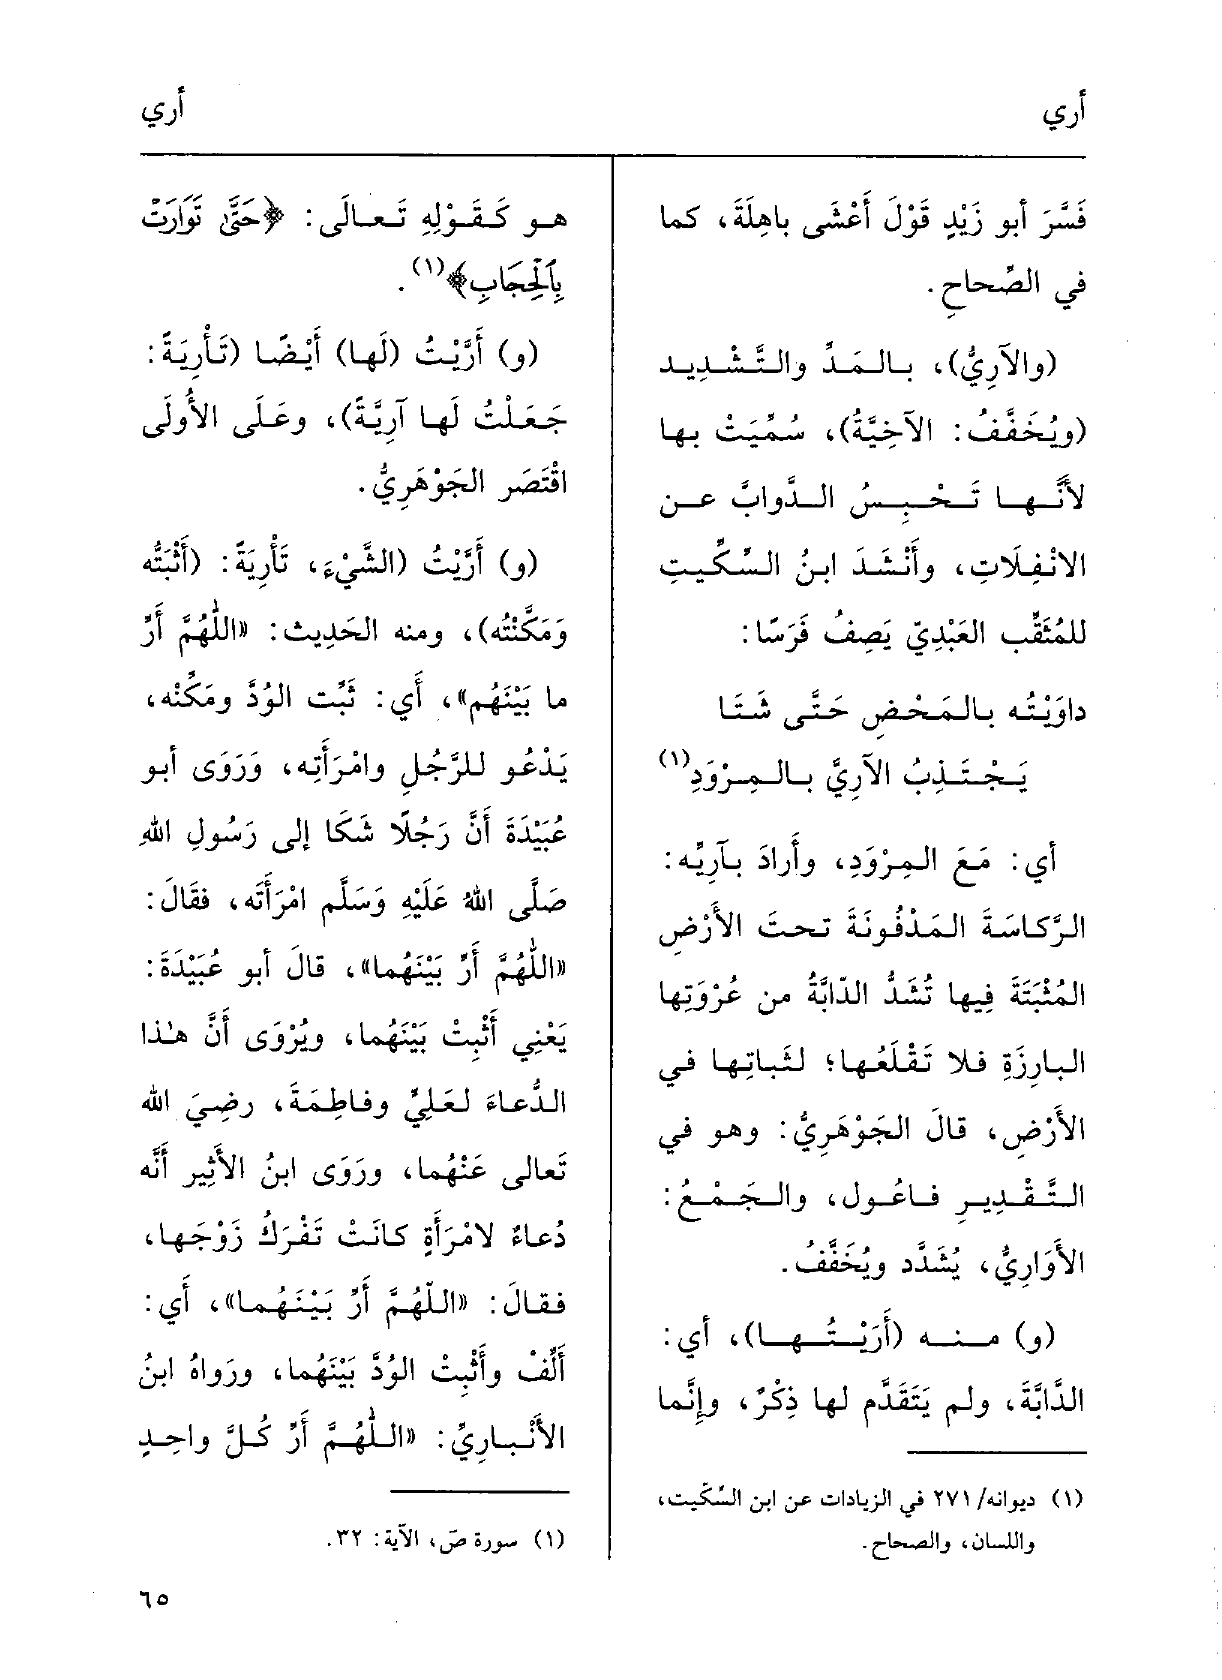 أري
أري
فَسَّرَ أبو زَيْدٍ قَوْلَ أَعْشَى باهِلَةَ، كما
في الصِّحاحِ.
(والآرِيُّ)، بالمَدِّ والتَّشْدِيد
(ويُخَفَّفُ: الآخِيَّةُ)، سُمِّيَتْ بها
لأنَّها تَحْبِسُ الدَّوابَّ عن
الانْفِلَاتِ، وأَنْشَدَ ابنُ السِّكِّيتِ
للمُثَقِّب العَبْدِيّ يَصِفُ فَرَسًا:
داوَيْتُه بالمَحْضِ حَتَّى شَتَا
يَجْتَذِبُ الآرِيَّ بالمِرْوَدِ(١)
أي: مَعَ المِرْوَدِ، وأَرادَ بآرِيِّه:
الرَّكاسَةَ المَدْفُونَةَ تحتَ الأَرْضِ
المُثْبَتَةَ فِيها تُشَدُّ الدّابَّةُ من عُرْوَتِها
البارِزَةِ فلا تَقْلَعُها؛ لثَباتِها في
الأَرْضِ، قالَ الجَوْهَرِيُّ: وهو في
التَّقْدِيرِ فاعُول، والجَمْعُ:
الأَوَارِيُّ، يُشَدَّد ويُخَفَّفُ.
(و) منه (أَرَيْتُها)، أي:
الدَّابَّةَ، ولم يَتَقَدَّم لها ذِكْرٌ، وإِنَّما
(١) ديوانه/ ٢٧١ في الزيادات عن ابن السِّكِّيت،
واللسان، والصحاح.
هو كَقَوْلِهِ تَعالَى: ﴿حَتَّىٰ تَوَارَتْ
بِٱلْحِجَابِ﴾(١).
(و) أَرَّيْتُ (لَها) أَيْضًا (تَأْرِيَةً:
جَعَلْتُ لَها آرِيَّةً)، وعَلَى الأُولَى
اقْتَصَر الجَوْهَرِيُّ.
(و) أَرَّيْتُ (الشَّيْءَ، تَأْرِيَةً: (أَثْبَتُّه
وَمَكَّنْتُه)، ومنه الحَدِيث: «اللَّهُمَّ أَرِّ
ما بَيْنَهُم»، أَي: ثَبِّت الوُدَّ ومَكِّنْه،
يَدْعُو للرَّجُلِ وامْرَأَتِه، وَرَوَى أبو
عُبَيْدَةَ أَنَّ رَجُلًا شَكَا إلى رَسُولِ اللهِ
صَلَّى اللهُ عَلَيْهِ وَسَلَّم امْرَأَتَه، فقَالَ:
«اللَّهُمَّ أَرِّ بَيْنَهُما»، قالَ أبو عُبَيْدَةَ:
يَعْنِي أَثْبِتْ بَيْنَهُما، ويُرْوَى أَنَّ هٰذا
الدُّعاءَ لعَلِيٍّ وفاطِمَةَ، رضِيَ الله
تَعالى عَنْهُما، ورَوَى ابنُ الأَثِير أَنَّه
دُعاءٌ لامْرَأَةٍ كانَتْ تَفْرَكُ زَوْجَها،
فقالَ: «اللّهُمَّ أَرِّ بَيْنَهُما»، أَي:
أَلِّفْ وأَثْبِتْ الوُدَّ بَيْنَهُما، ورَواهُ ابنُ
الأَنْبارِيِّ: «اللَّهُمَّ أَرِّ كُلَّ واحِدٍ
(١) سورة صٓ، الآية: ٣٢.
٦٥